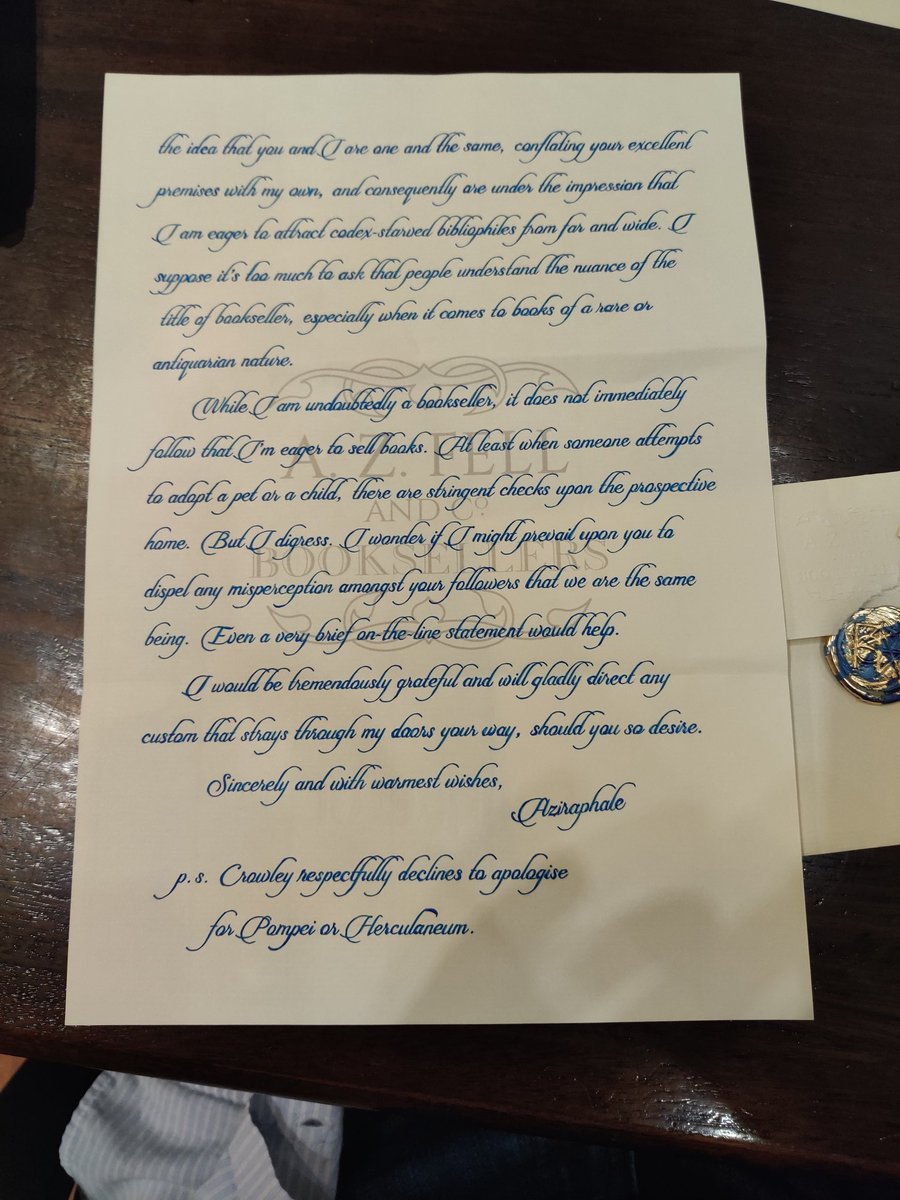 the idea that you and I are one and the same, conflating your excellent
premises with my own, and consequently are under the impression that
I am eager to attract codex-starved bibliophiles from far and wide. I
suppose it's too much to ask that people understand the nuance of the
title of bookseller, especially when it comes to books of a rare or
antiquarian nature.
While I am undoubtedly a bookseller, it does not immediately
follow that I'm eager to sell books. At least when someone attempts
A. Z. FELL
to adopt a pet or a child, there are stringent checks upon the prospective
AND Co
home. But I digress. I wonder if I might prevail upon you to
BOOKSELLERS
dispel any misperception amongst your followers that we are the same
being. Even a very brief on-the-line statement would help.
I would be tremendously grateful and will gladly direct any
custom that strays through my doors your way, should you so desire.
Sincerely and with warmest wishes,
Aziraphale
p.s. Crowley respectfully declines to apologise
for Pompei or Herculaneum.